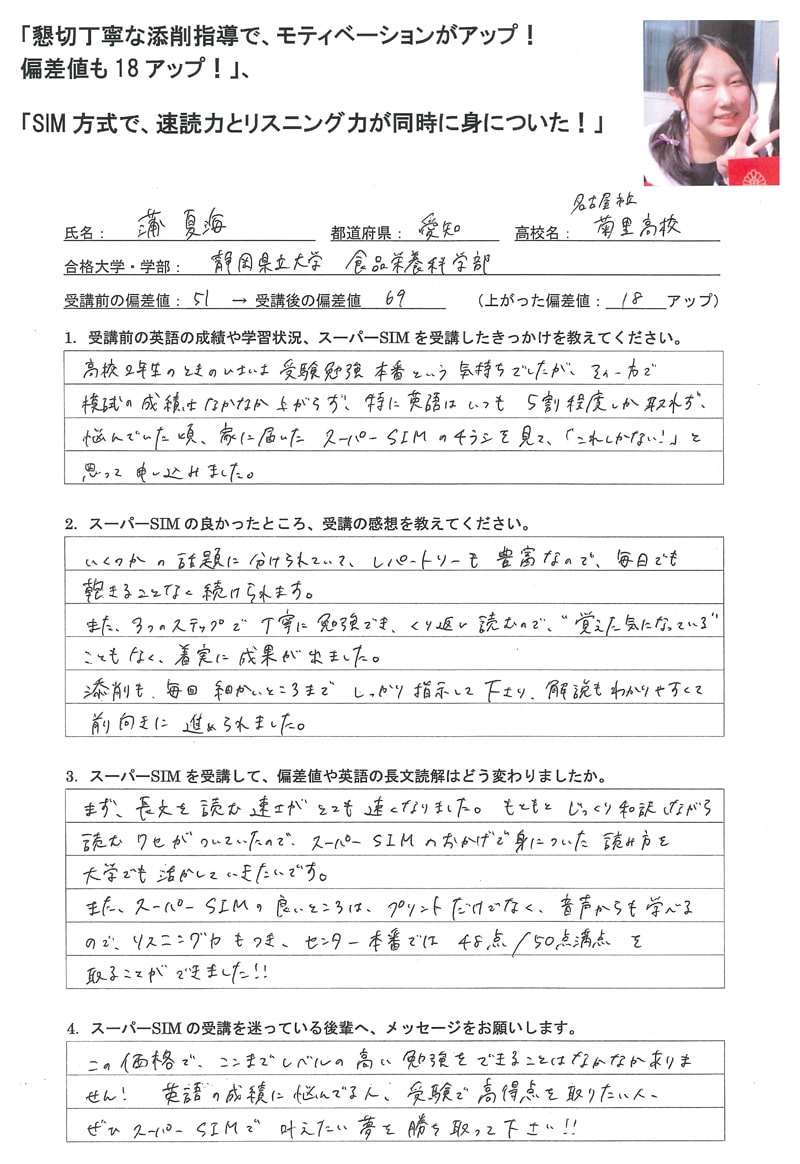 「懇切丁寧な添削指導で、モティベーションがアップ！
偏差値も18アップ！」、
「SIM方式で、速読力とリスニング力が同時に身についた！」
氏名： 蒲 夏海 都道府県： 愛知 高校名： 名古屋市立 菊里高校
合格大学・学部： 静岡県立大学 食品栄養科学部
受講前の偏差値： 51 → 受講後の偏差値 69 （上がった偏差値： 18 アップ）
1. 受講前の英語の成績や学習状況、スーパーSIMを受講したきっかけを教えてください。
高校2年生のときのいまは 受験勉強 本番という 気持ちでしたが、その一方で
模試の成績はなかなか上がらず、特に英語はいつも 5割程度しか取れず、
悩んでいた頃、家に届いた スーパーSIMのチラシを見て、「これしかない！」と
思って申し込みました。
2. スーパーSIMの良かったところ、受講の感想を教えてください。
いくつかの話題に分けられていて、レパートリーも 豊富なので、毎日でも
飽きることなく続けられます。
また、3つのステップで丁寧に勉強でき、くり返し読むので、“覚えた気になっている”
こともなく、着実に成果が出ました。
添削も、毎回 細かいところまで しっかり指示して下さり、解説もわかりやすくて
前向きに 進められました。
3. スーパーSIMを受講して、偏差値や英語の長文読解はどう変わりましたか。
まず、長文を読む速さがとても速くなりました。もともと じっくり和訳しながら
読むクセがついていたので、スーパーSIMのおかげで身についた 読み方を
大学でも活かしていきたいです。
また、スーパーSIMの良いところは、プリントだけでなく、音声からも学べる
ので、リスニング力もつき、センター本番では 48点/50点満点 を
取ることができました!!
4. スーパーSIMの受講を迷っている後輩へ、メッセージをお願いします。
この価格で、ここまでレベルの高い勉強をできることはなかなかありま
せん！ 英語の成績に悩んでる人、受験で高得点を取りたい人、
ぜひスーパーSIMで 叶えたい夢を勝ち取って下さい!!